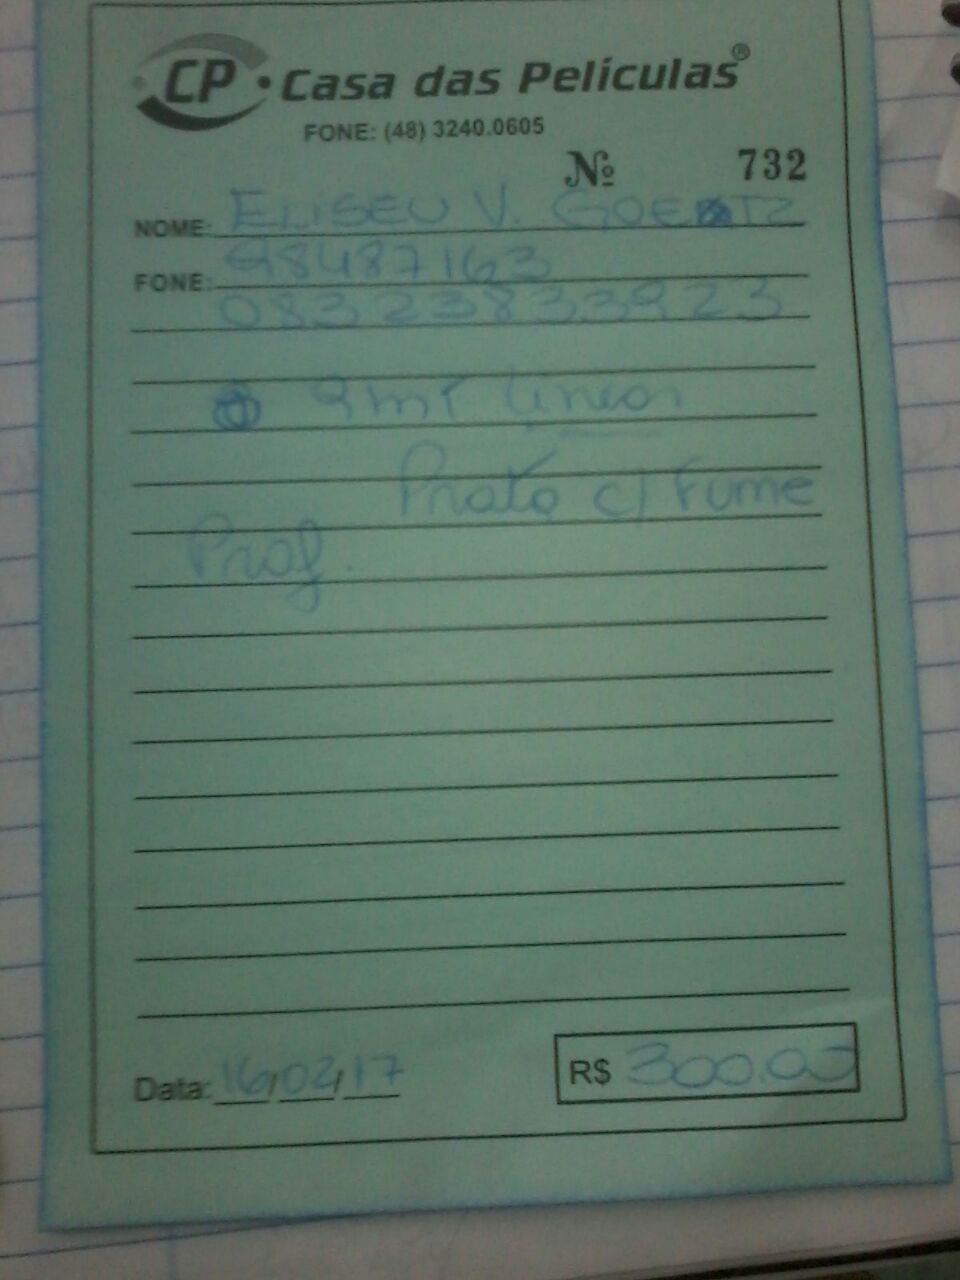 CP Casa das Películas®
FONE: (48) 3240.0605
Nº 732
NOME: ELISEU V. GOETZ
FONE: 98487163
08323833923
9 mt linear
Prata c/ Fume
Prof.
Data: 16/02/17
R$ 300,00